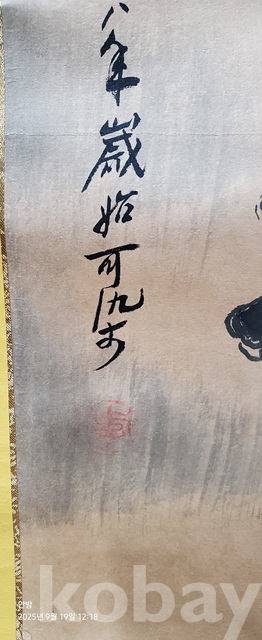 八年歲始可
안방
2025년 9월 19일 12:18
kobay